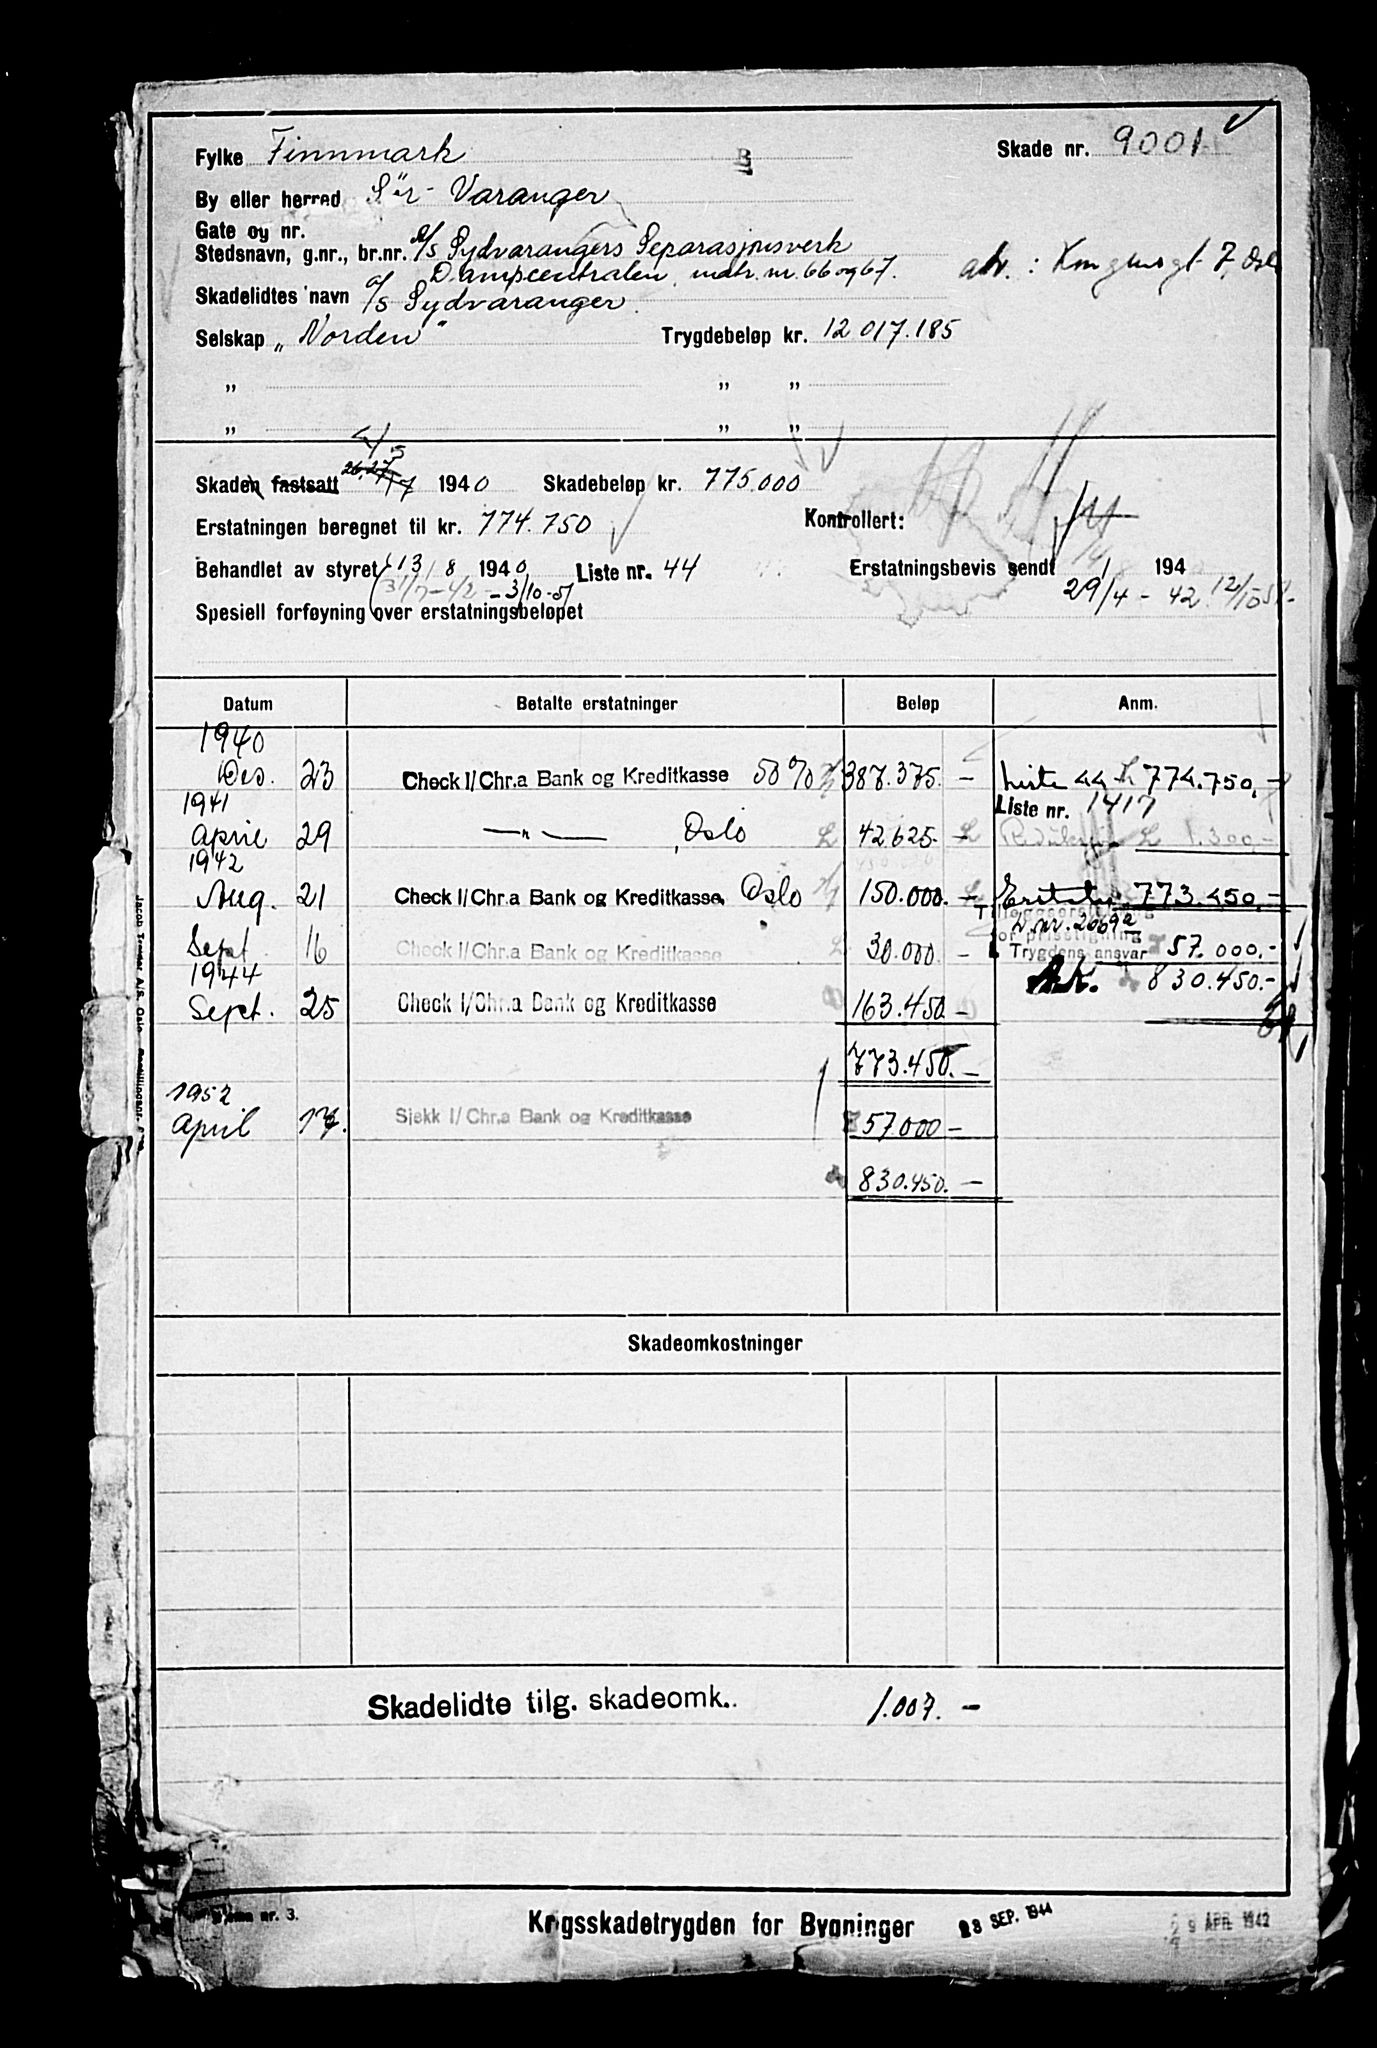 Fylke Finnmark B Skade nr. 9001
By eller herred Sør-Varanger
Gate og nr.
Stedsnavn, g.nr., br.nr. A/S Sydvarangers Separasjonsverk
Dampcentralen, matr. nr. 66 og 67. adr. : Kongensgt 7, Oslo
Skadelidtes navn A/S Sydvaranger.
Selskap „ Norden " Trygdebeløp kr. 12 017.185
„ „ „
„ „ „
4/5
Skaden fastsatt 26,27/7 1940 Skadebeløp kr. 775.000
Erstatningen beregnet til kr. 774.750 Kontrollert:
Behandlet av styret 13/8 1940 Liste nr. 44 Erstatningsbevis sendt 14/8 194
(31/7-42 - 3/10-51 29/4 - 42 12/10 51-
Spesiell forføyning over erstatningsbeløpet
Datum Betalte erstatninger Beløp Anm.
1940
Des. 23 Check I/Chr.a Bank og Kreditkasse 50% 387.375.- Liste 44 774.750.-
1941 Liste nr. 1417
April 29 -"- , Oslo 42.625.- Reduksjon 1.300,-
1942
Aug. 21 Check I/Chr.a Bank og Kreditkasse, Oslo 150.000.- Erstatn. 773.450.-
Tilleggserstatning
L. nr. 2669a
Sept 16 Check I/Chr.a Bank og Kreditkasse 30.000.- for prisstigning
Trygdens ansvar 57.000.-
1944 A.K. 830.450.-
Sept. 25 Check I/Chr.a Bank og Kreditkasse 163.450.-
773.450.-
1952
April 17. Sjekk I/Chr.a Bank og Kreditkasse 57.000-
830.450.-
Skadeomkostninger
Skadelidte tilg. skadeomk.. 1.007.-
nr. 3.
Krigsskadetrygden for Bygninger 28 SEP. 1944 29 APR. 1942